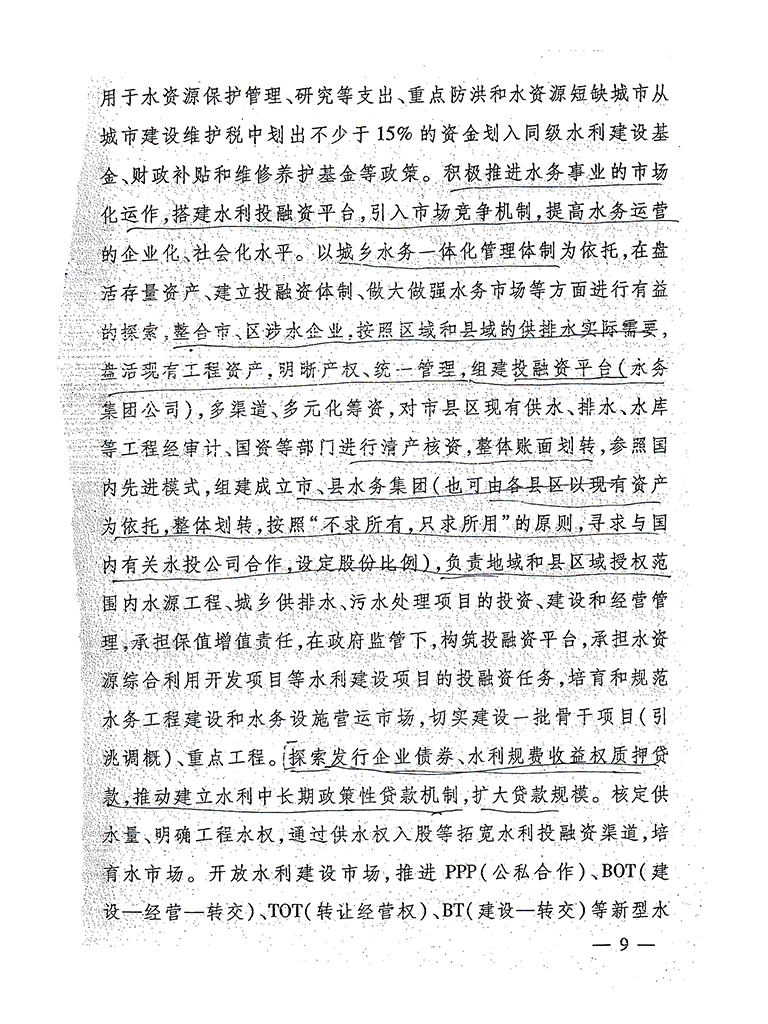 用于水资源保护管理、研究等支出、重点防洪和水资源短缺城市从
城市建设维护税中划出不少于15%的资金划入同级水利建设基
金、财政补贴和维修养护基金等政策。积极推进水务事业的市场
化运作，搭建水利投融资平台，引入市场竞争机制，提高水务运营
的企业化、社会化水平。以城乡水务一体化管理体制为依托，在盘
活存量资产、建立投融资体制、做大做强水务市场等方面进行有益
的探索，整合市、区涉水企业，按照区域和县域的供排水实际需要，
盘活现有工程资产，明晰产权、统一管理，组建投融资平台(水务
集团公司)，多渠道、多元化筹资，对市县区现有供水、排水、水库
等工程经审计、国资等部门进行清产核资，整体账面划转，参照国
内先进模式，组建成立市、县水务集团(也可由各县区以现有资产
为依托，整体划转，按照“不求所有，只求所用”的原则，寻求与国
内有关水投公司合作，设定股份比例)，负责地域和县区域授权范
围内水源工程、城乡供排水、污水处理项目的投资、建设和经营管
理，承担保值增值责任，在政府监管下，构筑投融资平台，承担水资
源综合利用开发项目等水利建设项目的投融资任务，培育和规范
水务工程建设和水务设施营运市场，切实建设一批骨干项目(引
洮调概)、重点工程。探索发行企业债券、水利规费收益权质押贷
款，推动建立水利中长期政策性贷款机制，扩大贷款规模。核定供
水量、明确工程水权，通过供水权入股等拓宽水利投融资渠道，培
育水市场。开放水利建设市场，推进PPP(公私合作)、BOT(建
设—经营—转交)、TOT(转让经营权)、BT(建设—转交)等新型水
— 9 —